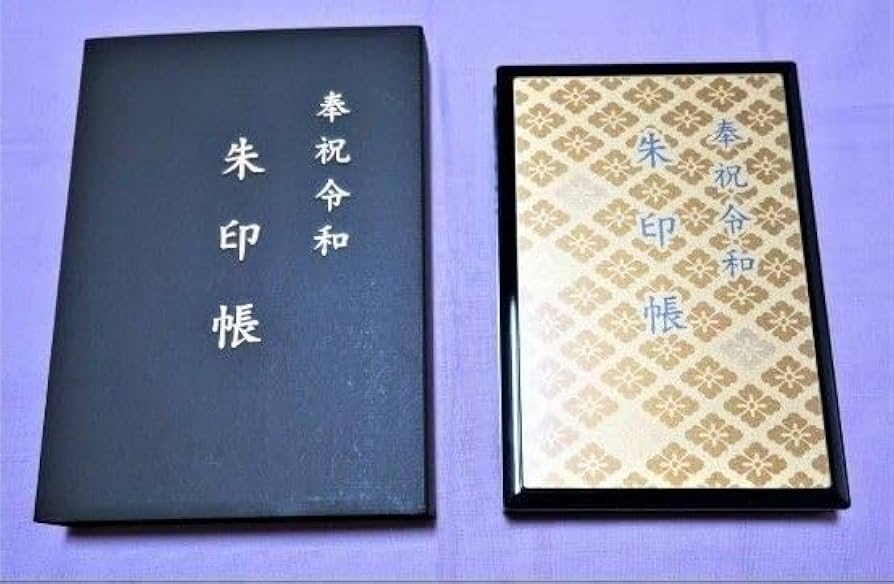 奉祝令和
朱印帳
奉祝令和
朱印帳